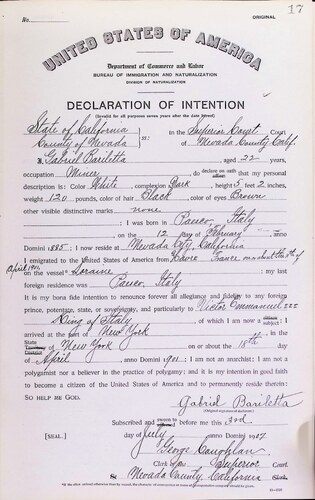 17
No.
ORIGINAL
UNITED STATES OF AMERICA
Department of Commerce and Labor
BUREAU OF IMMIGRATION AND NATURALIZATION
DIVISION OF NATURALIZATION
DECLARATION OF INTENTION
(Invalid for all purposes seven years after the date hereof)
State of California
County of Nevada ss: In the Superior Court Court
of Nevada County Calif.
I, Gabriel Bariletta, aged 22 years,
occupation Miner, do declare on oath that my personal
description is: Color White, complexion Dark, height 5 feet 2 inches,
weight 120 pounds, color of hair Black, color of eyes Brown
other visible distinctive marks none
I was born in Italy
on the 12 day of February, anno
Domini 1885; I now reside at Nevada City, California
I emigrated to the United States of America from Havre France on about the 7th of
April 1901 on the vessel Loraine; my last
foreign residence was Italy
It is my bona fide intention to renounce forever all allegiance and fidelity to any foreign
prince, potentate, state, or sovereignty, and particularly to Victor Emmanuel III
King of Italy, of which I am now a subject; I
arrived at the port of New York, in the
State of New York on or about the 18th day
of April, anno Domini 1901; I am not an anarchist; I am not a
polygamist nor a believer in the practice of polygamy; and it is my intention in good faith
to become a citizen of the United States of America and to permanently reside therein:
SO HELP ME GOD.
Gabriel Bariletta
(Original signature of declarant)
Subscribed and sworn to before me this 3rd
[SEAL.] day of July, anno Domini 1907
George Coughlan
Clerk of the Superior Court
Nevada County, California Clerk.